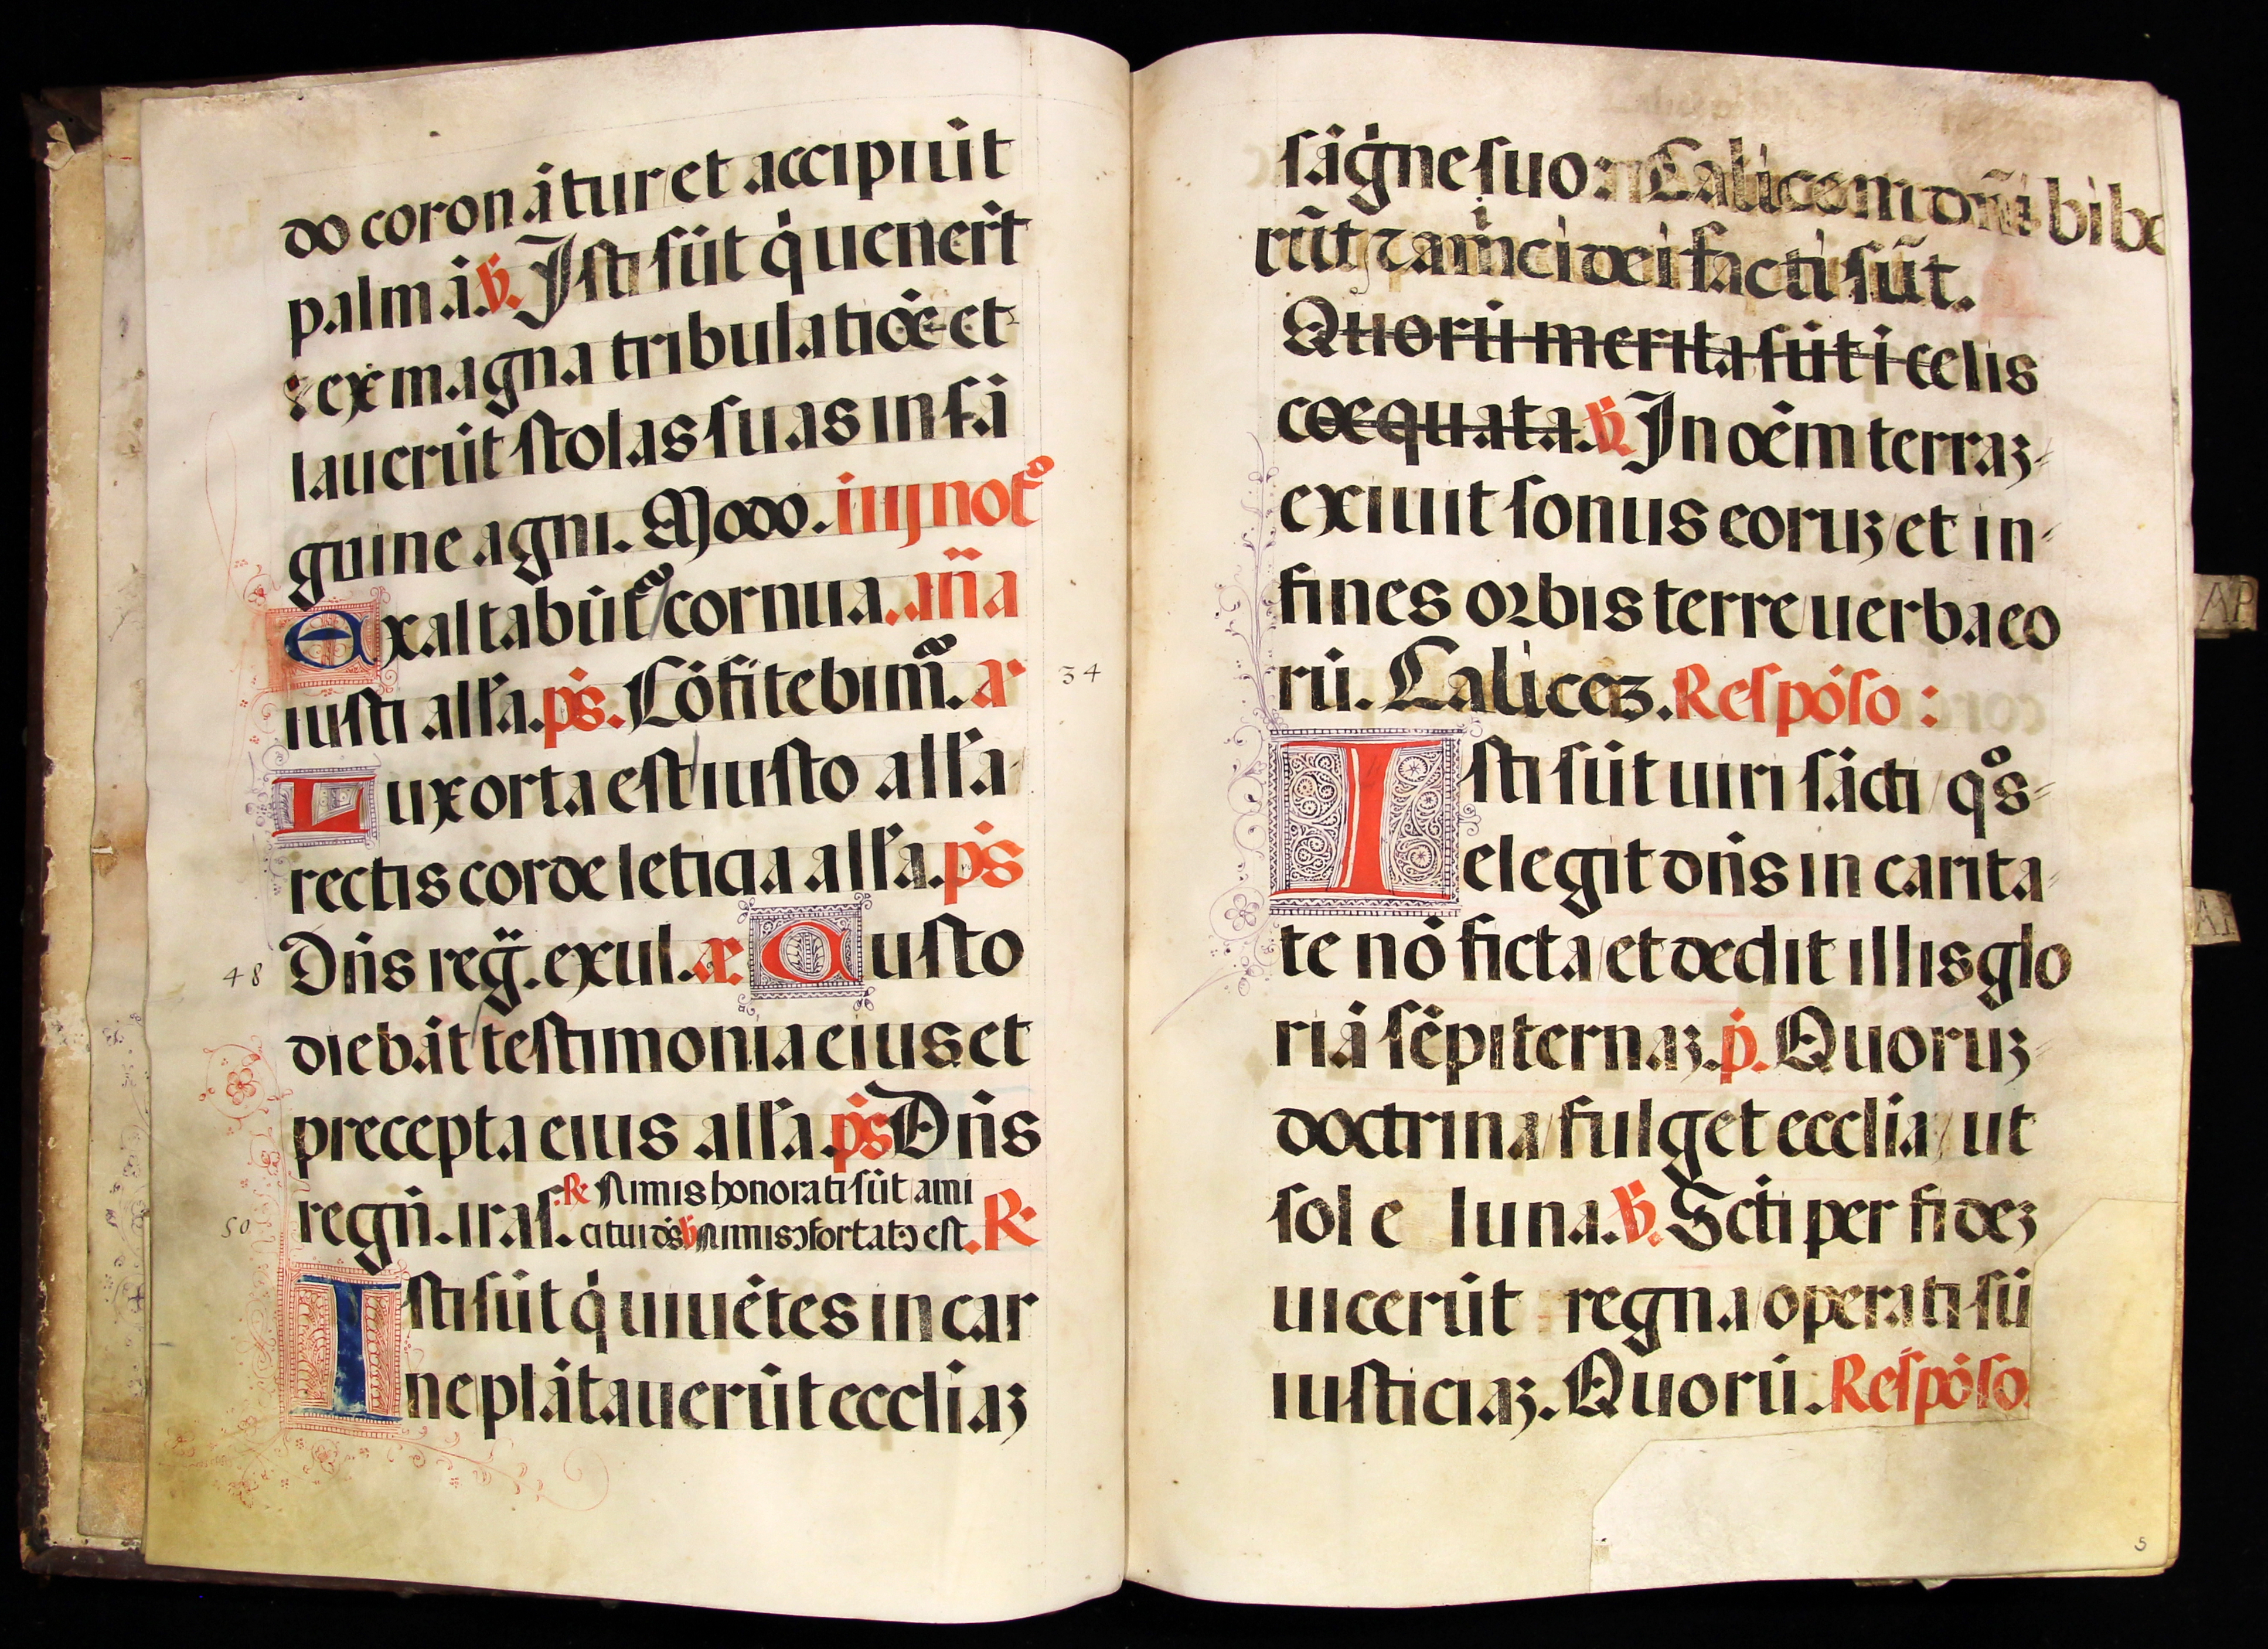 do coronātur et accipiūt
palmā. ℣. Isti sūt q̇ uenert̄
ex magna tribulatiōe et
lauerūt stolas suas in sā
guine agni. Modo. iij noc̄
Exaltabūt᷒ cornua. añā
iusti alła. ps. Cōfitebim᷒. a
34
Lux orta est iusto alła
rectis corde leticia alła. ps
48
Dn̄s reg̈. exul. æ Custo
diebāt testimonia eius et
precepta eius alła. ps Dn̄s
50
regn̄. iras. ℟ Nimis honorati sūt ami
citui ds̄ ℣ Nimis ↄfortatꝰ est. ℟
Isti sūt q̇ uiuētes in car
ne plātauerūt eccliaꝫ
sāgne suo: Calicem dn̄i bibe
rūt ⁊ amici dei facti sūt.
Quorū merita sūt ī celis
coequata. ℣. In oēm terraꝫ
exiuit sonus eoruꝫ et in
fines orbis terre uerba eo
rū. Caliceꝫ. Respōso:
Isti sūt uiri sācti qͦs
elegit dn̄s in carita
te nō ficta et dedit illis glo
riā sēpiternaꝫ. p̄. Quoruꝫ
doctrina fulget ecclia ut
sol e luna. ℣. Scti per fideꝫ
uicerūt regna operati sū
iusticiaꝫ. Quorū. Respōso
AP
5